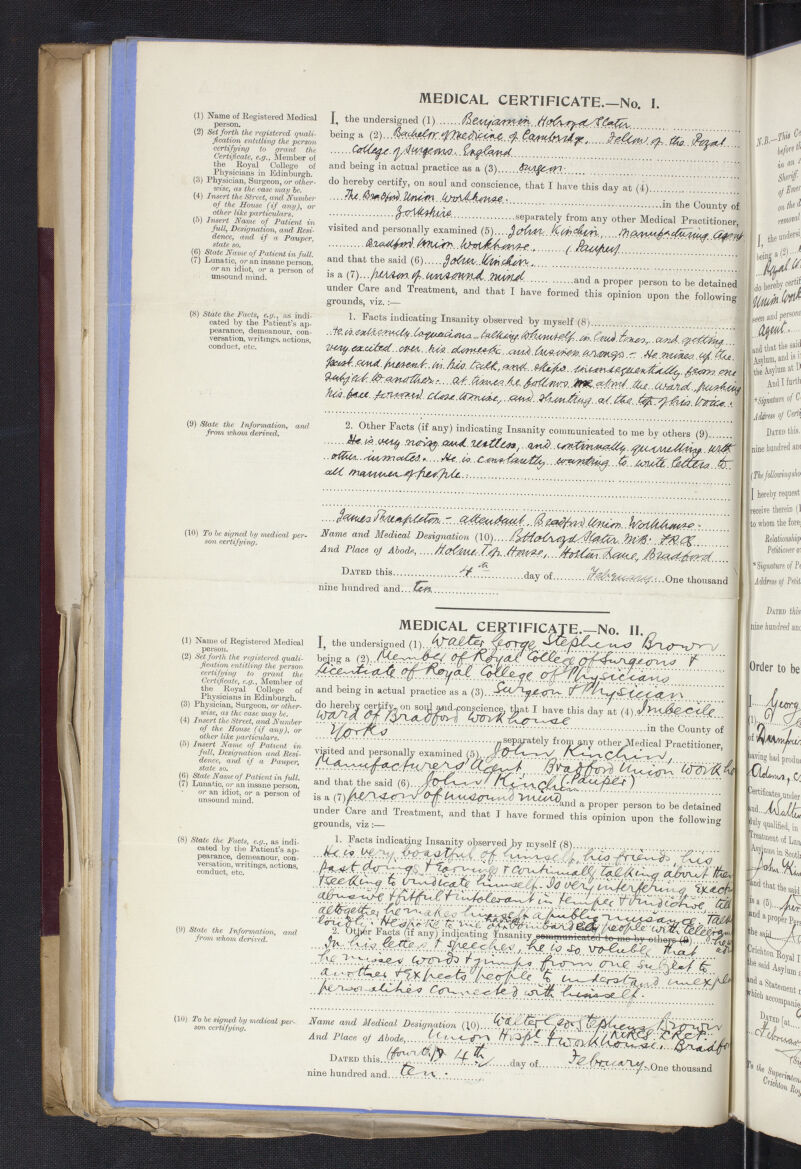 MEDICAL CERTIFICATE.—No. I.
(1) Name of Registered Medical
person.
(2) Set forth the registered quali-
fication entitling the person
certifying to grant the
Certificate, e.g., Member of
the Royal College of
Physicians in Edinburgh.
(3) Physician, Surgeon, or other-
wise, as the case may be.
(4) Insert the Street, and Number
of the House (if any), or
other like particulars.
(5) Insert Name of Patient in
full, Designation, and Resi-
dence, and if a Pauper,
state so.
(6) State Name of Patient in full.
(7) Lunatic, or an insane person,
or an idiot, or a person of
unsound mind.
(8) State the Facts, e.g., as indi-
cated by the Patient's ap-
pearance, demeanour, con-
versation, writings, actions,
conduct, etc.
(9) State the Information, and
from whom derived.
(10) To be signed by medical per-
son certifying.
I, the undersigned (1) Benjamin Holroyd Slater
being a (2) Bachelor of Medicine of Cambridge, Fellow of the Royal
College of Surgeons England
and being in actual practice as a (3) Surgeon
do hereby certify, on soul and conscience, that I have this day at (4)
The Bradford Union Workhouse in the County of
Yorkshire separately from any other Medical Practitioner,
visited and personally examined (5) John Kinchin, manufacturing agent
Bradford Union Workhouse, (Pauper)
and that the said (6) John Kinchin
is a (7) person of unsound mind and a proper person to be detained
under Care and Treatment, and that I have formed this opinion upon the following
grounds, viz. :—
1. Facts indicating Insanity observed by myself (8)
He is extremely loquacious - talking to himself in loud tones, and getting
very excited over his domestic and business wrongs - He mixes up the
past and present in his talk, and skips inconsequentially from one
subject to another. at times he follows me about the ward pushing
his face forward close to mine, and shouting at the top of his voice.
2. Other Facts (if any) indicating Insanity communicated to me by others (9)
He is very noisy and restless, and continually quarrelling with
other inmates. He is constantly wanting to write letters to
all manner of people.
James Threapleton - attendant Bradford Union Workhouse.
Name and Medical Designation (10) B Holroyd Slater M.B. FRCS
And Place of Abode, Holme Top House, Horton Lane, Bradford
DATED this 4th day of February One thousand
nine hundred and ten
MEDICAL CERTIFICATE.—No. II.
(1) Name of Registered Medical
person.
(2) Set forth the registered quali-
fication entitling the person
certifying to grant the
Certificate, e.g., Member of
the Royal College of
Physicians in Edinburgh.
(3) Physician, Surgeon, or other-
wise, as the case may be.
(4) Insert the Street, and Number
of the House (if any), or
other like particulars.
(5) Insert Name of Patient in
full, Designation, and Resi-
dence, and if a Pauper,
state so.
(6) State Name of Patient in full.
(7) Lunatic, or an insane person,
or an idiot, or a person of
unsound mind.
(8) State the Facts, e.g., as indi-
cated by the Patient's ap-
pearance, demeanour, con-
versation, writings, actions,
conduct, etc.
(9) State the Information, and
from whom derived.
(10) To be signed by medical per-
son certifying.
I, the undersigned (1) Walter George Stephens Brown
being a (2) Member of Royal College of Surgeons &
Licentiate of Royal College of Physicians
and being in actual practice as a (3) Surgeon & Physician
do hereby certify, on soul and conscience, that I have this day at (4) Imbecile
ward of Bradford Workhouse in the County of
Yorks separately from any other Medical Practitioner,
visited and personally examined (5) John Kinchin,
Manufacturers Agent Bradford Union Workho
and that the said (6) John Kinchin (Pauper)
is a (7) person of unsound mind and a proper person to be detained
under Care and Treatment, and that I have formed this opinion upon the following
grounds, viz :—
1. Facts indicating Insanity observed by myself (8)
He is very boastful of himself, his friends, his
past doings & earnings & continually talking about them
& seeking to vindicate himself. Is very interfering
abusive & fitful & intolerant in temper & vindictive till
altogether he makes himself a public nuisance. Talks
people with telegrams
2. Other Facts (if any) indicating Insanity communicated to me by others (9)
In his letters & speeches, he is so voluble that
he misses words & jumps from one subject to
another & expects people to understand unexpla
personalities connected with himself.
Name and Medical Designation (10) Walter Geo Stephens Brown
MRCS. LRCP.
And Place of Abode, Union Hospl. & workhouse. Bradfor
DATED this (fourth) 4th day of Febuary. One thousand
nine hundred and ten.
N.B.—This
I, the undersi
being a (2)
do hereby certif
Union Work
seen and person
agent.
and that the said
Asylum, and is i
the Asylum at D
And I furth
*Signature of C
Address of Certi
DATED this
nine hundred an
(The following
I hereby request
receive therein (
to whom the fore
Relationship
Petitioner
*Signature of Pe
Address of Petit
DATED this
nine hundred and
Order to be
I, Georg
of Dumfries
having had produc
Certificates, under
and Walte
duly qualified, in
Treatment of Lun
Asylums in Scotl
John Kin
and that the said
is a (5) per
and a proper Pers
the said
Crichton Royal I
the said Asylum
and a Statement
which accompanies
DATED (at
To the Superinten
Crichton Roy